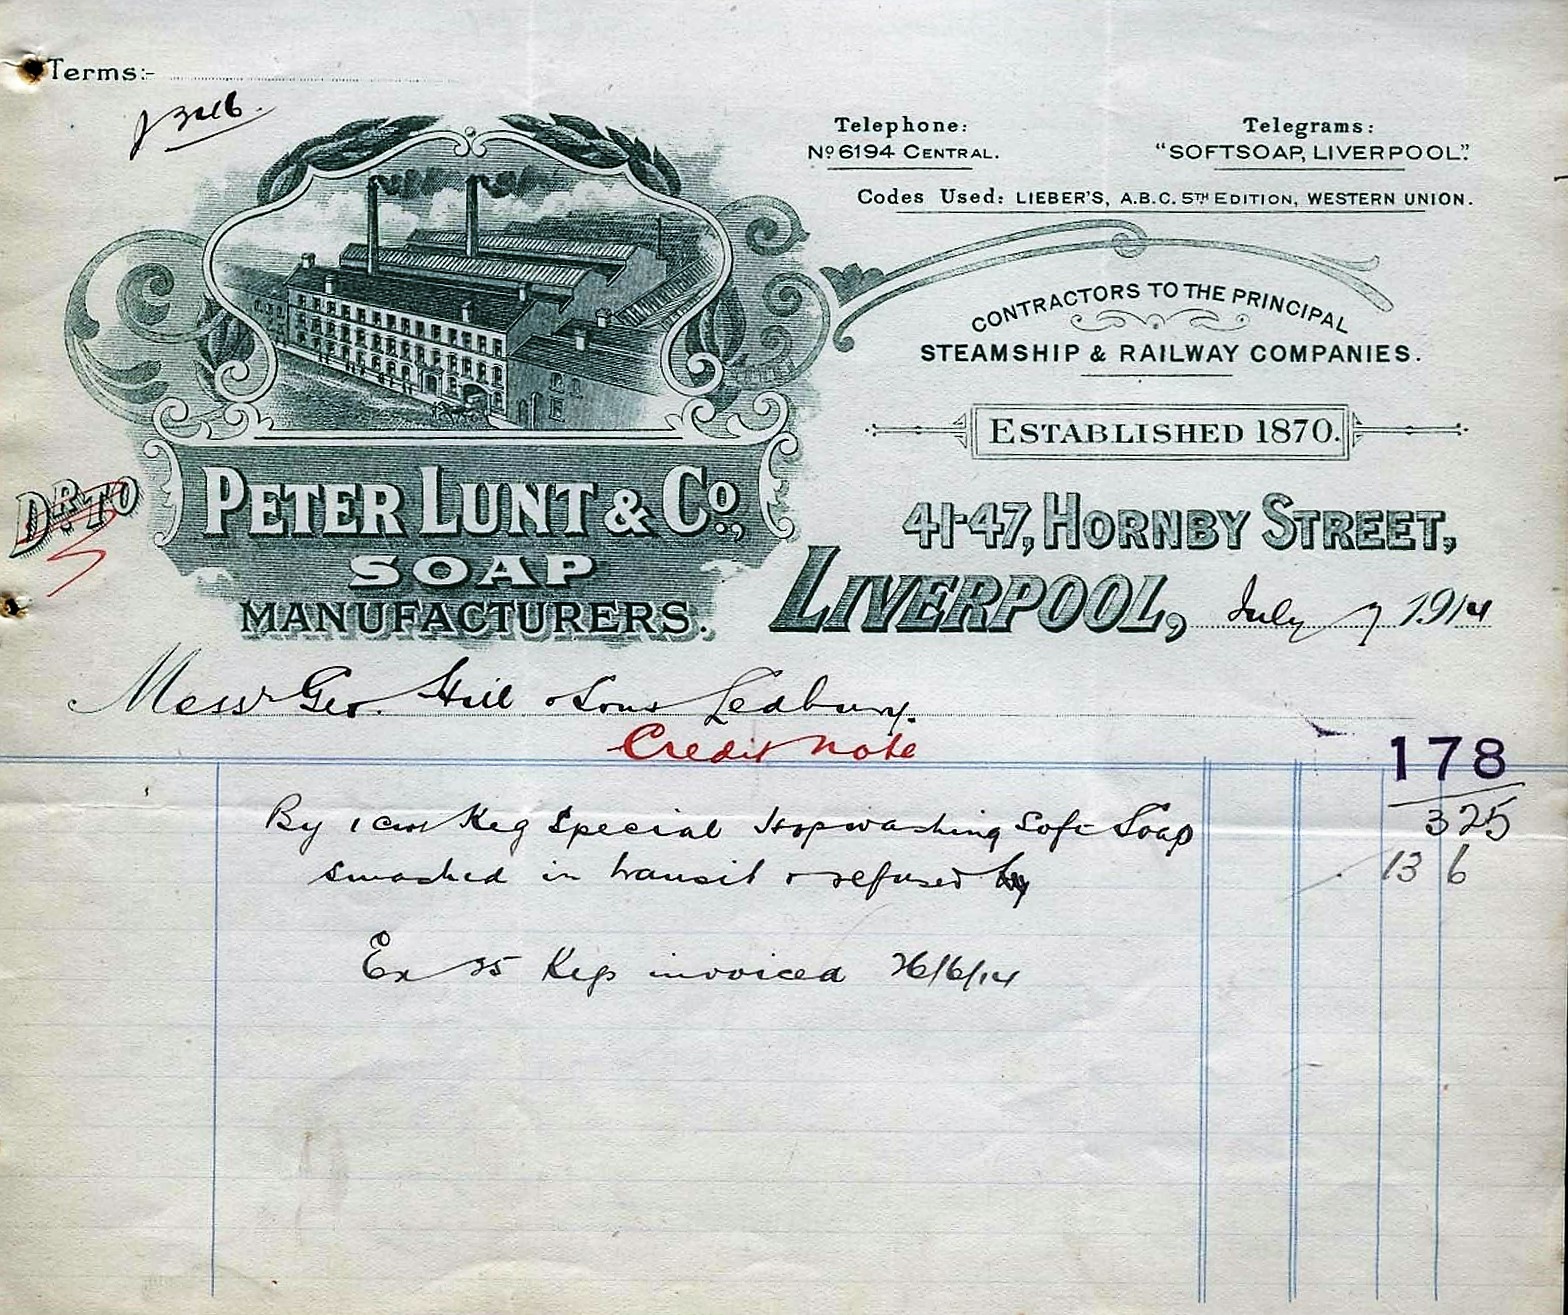 Terms:-
Telephone:
No 6194 CENTRAL.
Telegrams:
"SOFTSOAP, LIVERPOOL".
Codes Used: LIEBER'S, A.B.C. 5TH EDITION, WESTERN UNION.
CONTRACTORS TO THE PRINCIPAL
STEAMSHIP & RAILWAY COMPANIES.
ESTABLISHED 1870.
DR TO
PETER LUNT & Co.,
SOAP
MANUFACTURERS.
41-47, HORNBY STREET,
LIVERPOOL, July 7 1914
Messrs Geo. Hill & Sons Ledbury.
Credit Note
178
325
By 1 cwt Keg Special Hopwashing Soft Soap
smashed in transit & refused by
13 6
Ex 25 Kegs invoiced 26/6/14